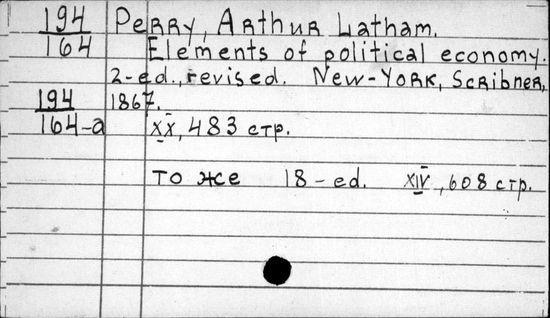 194 Perry, Arthur Latham.
164 Elements of political economy.
2-ed., revised. New-York, Scribner,
194 1867.
164-a XX, 483 стр.
то же 18-ed. XIV, 608 стр.